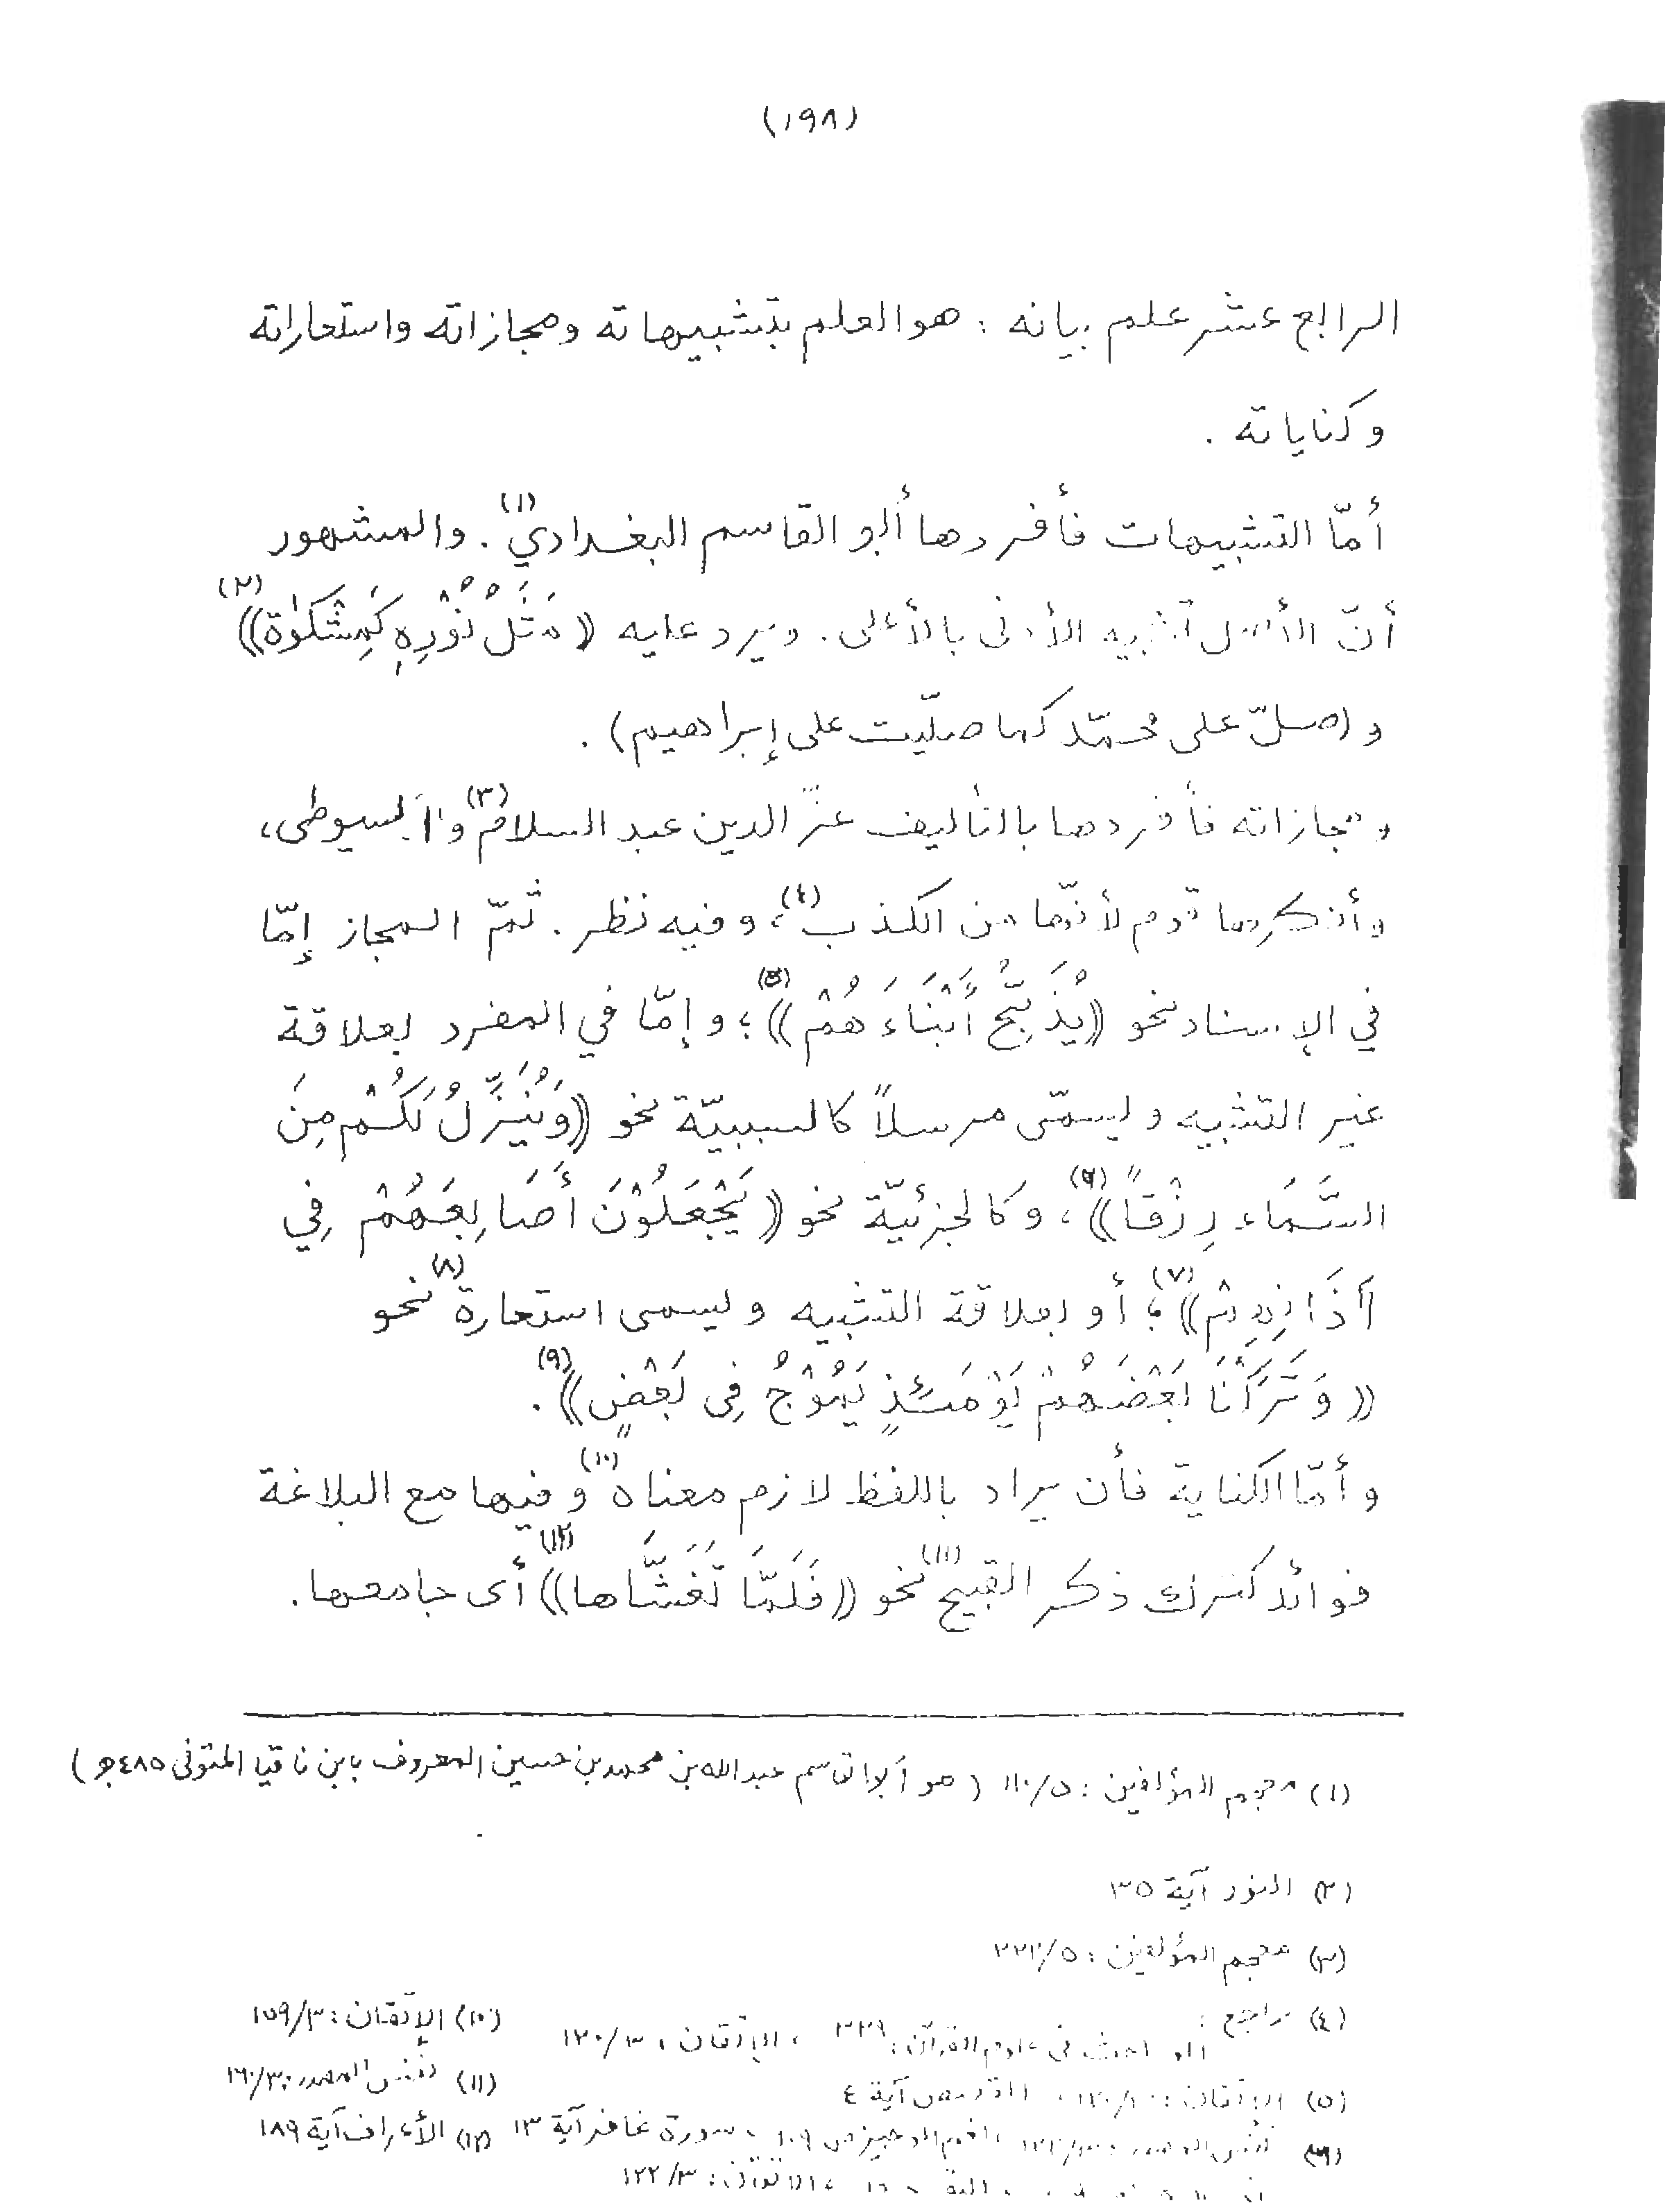 (١٩٨)
الرابع عشر علم بيانه : هو العلم بتشبيهاته ومجازاته واستعاراته
وكناياته .
أمّا التشبيهات فأفردها أبو القاسم البغدادي(١) . والمشهور
أنّ الأصل تشبيه الأدنى بالأعلى . ويرد عليه ((مَثَلُ نُوْرِهِ كَمِشْكَوٰةٍ))(٢)
و (صلّ على محمّد كما صلّيت على إبراهيم) .
ومجازاته فأفردها بالتأليف عزّ الدين عبد السلام(٣) والسيوطى،
وأنكرها قوم لأنّها من الكذب(٤)، وفيه نظر . ثمّ المجاز إمّا
في الإسناد نحو ((يُذَبِّحُ أَبْنَاءَهُمْ))(٥)؛ وإمّا في المفرد بعلاقة
غير التشبيه ويسمّى مرسلاً كالسببيّة نحو ((وَيُنَزِّلُ لَكُمْ مِنَ
السَّمَاء رِزْقاً))(٦)، وكالجزئيّة نحو ((يَجْعَلُوْنَ أَصَابِعَهُمْ فِي
آذَانِهِمْ))(٧)؛ أو بعلاقة التشبيه ويسمى استعارة(٨) نحو
((وَتَرَكْنَا بَعْضَهُمْ يَوْمَئِذٍ يَمُوْجُ فِى بَعْضٍ))(٩) .
وأمّا الكناية فأن يراد باللفظ لازم معناه(١٠) وفيها مع البلاغة
فوائد كترك ذكر القبيح(١١) نحو ((فَلَمَّا تَغَشَّاها))(١٢) أى جامعها .
(١) معجم المؤلفين : ١١٠/٥ (هو أبو القاسم عبد الله بن محمد بن حسين المعروف بابن ناقيا المتوفى ٤٨٥هـ)
(٢) النور آية ٣٥
(٣) معجم المؤلفين : ٥/
(٤) راجع :
المباحث فى علوم القرآن : ٣٣٩ ، الإتقان : ١٢٠/٣
(٥) الإتقان : ، القصص آية ٤
(٦) نفس المصدر : ، سورة غافر آية ١٣
الإتقان : ١٢٢/٣
(١٠) الإتقان : ١٥٩/٣
(١١) نفس المصدر : ١٦٠/٣
(١٢) الأعراف آية ١٨٩